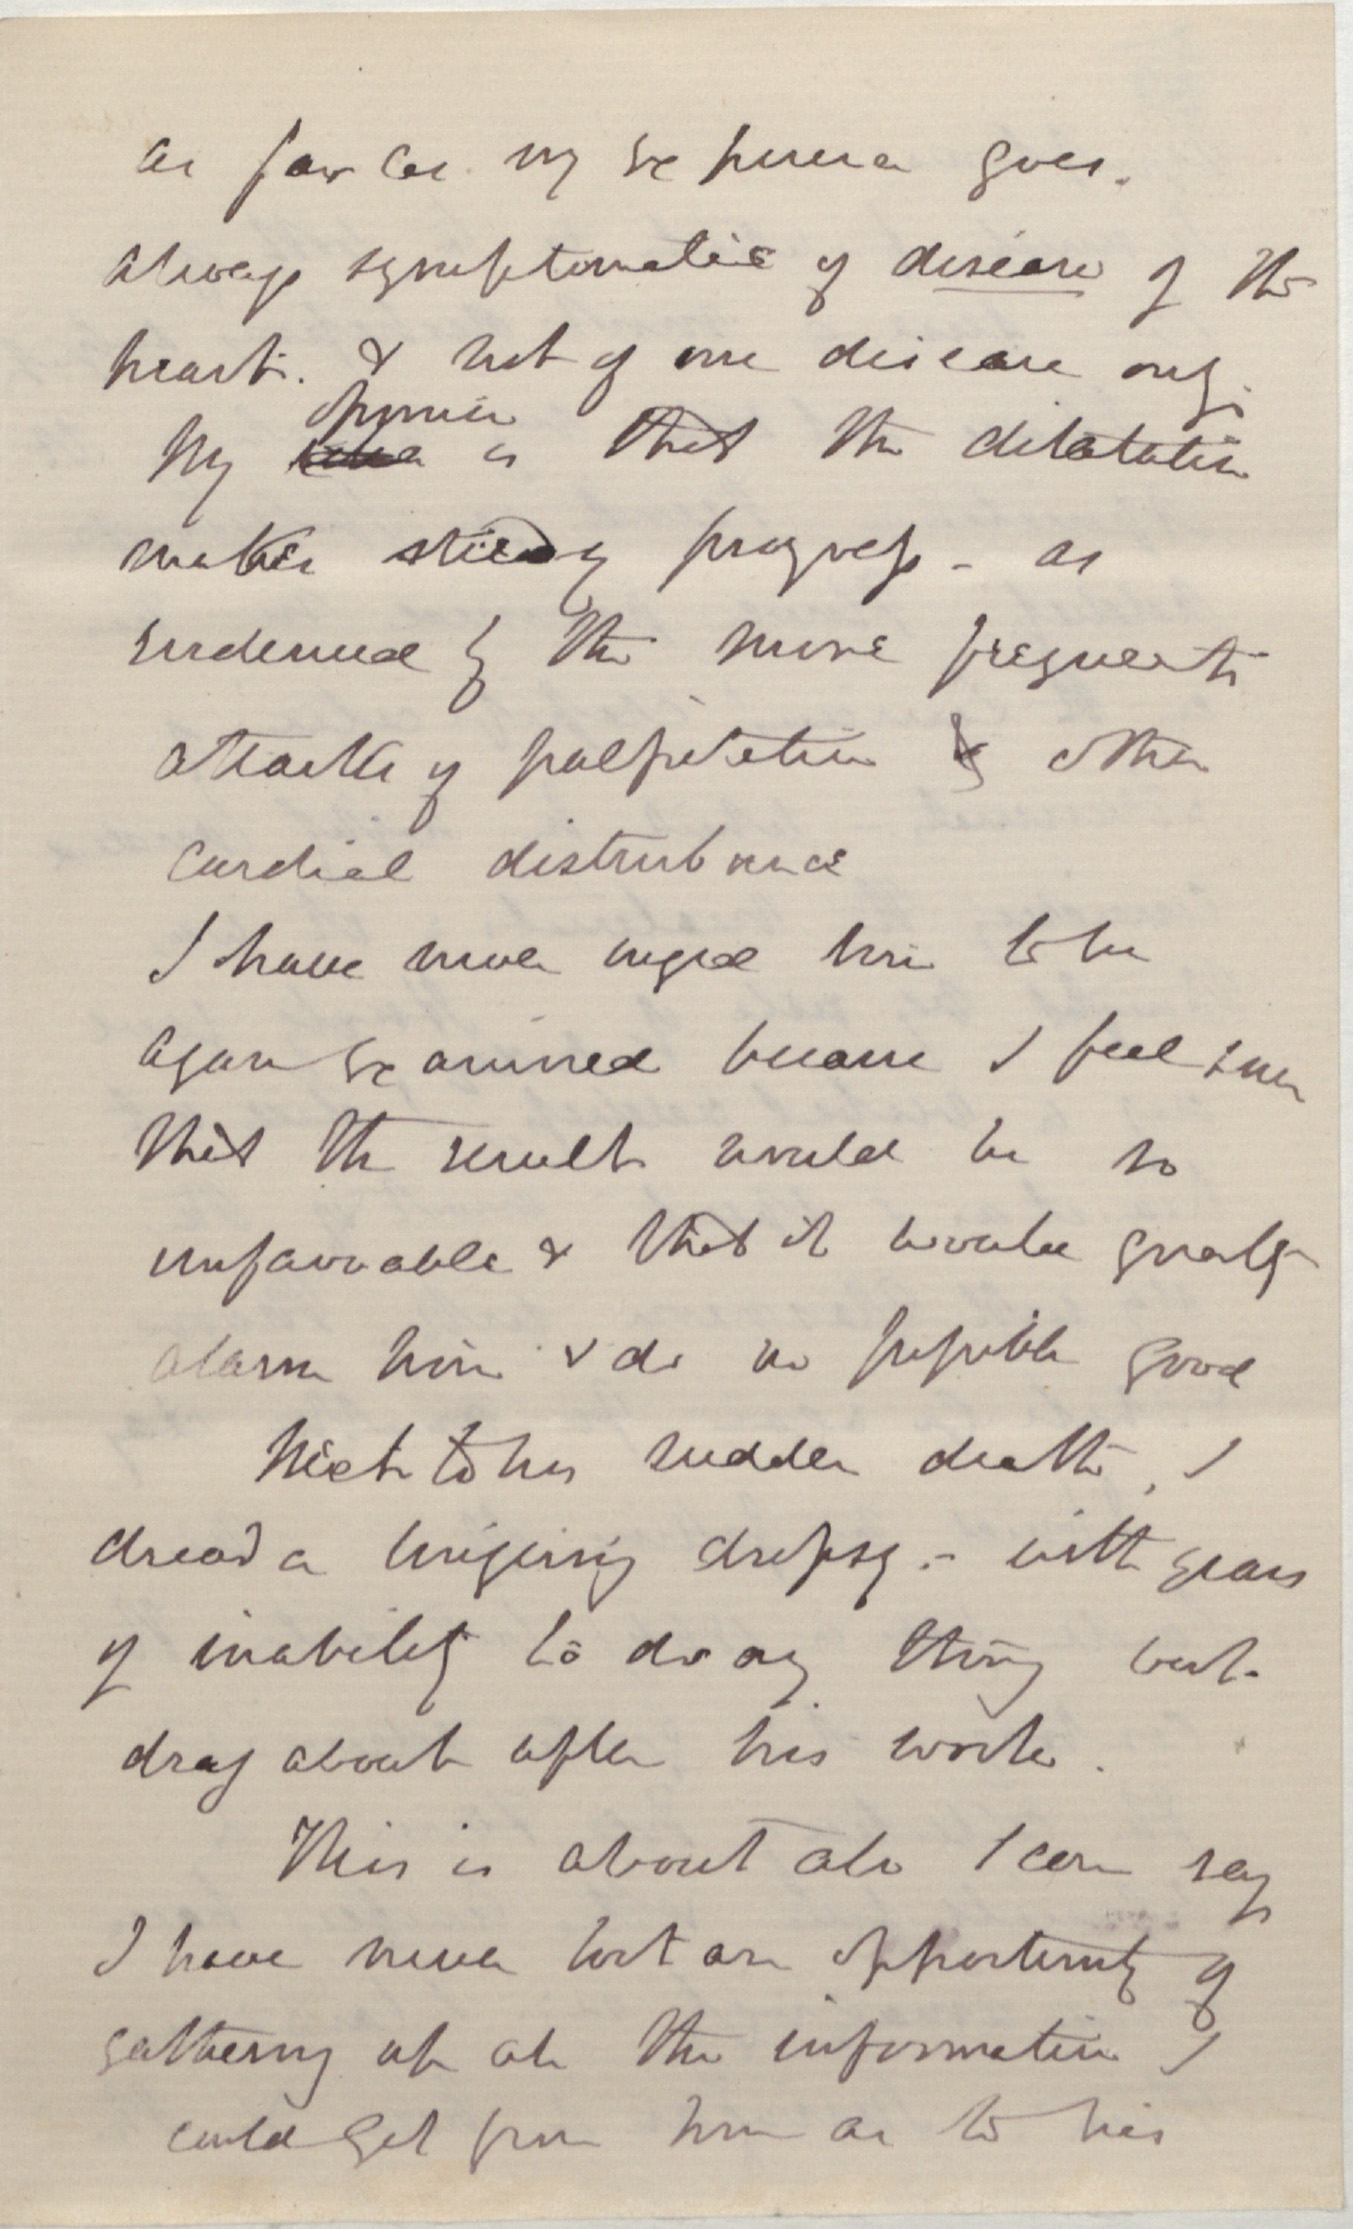 as far as my experience goes.
always symptomatic of disease of the
heart. & not of one disease only.
opinion
My is that the dilatation
makes steady progress - as
evidenced by the more frequent
attacks of palpitation & other
cardial disturbance
I have never urged him to be
again examined because I feel sure
that the result would be so
unfavorable & that it would greatly
alarm him & do no possible good
Next to his sudden death, I
dread a lingering dropsy. - with years
of inability to do any thing but
drag about after his work.
This is about all I can say
I have never lost an opportunity of
gathering up all the information I
could get from him as to his